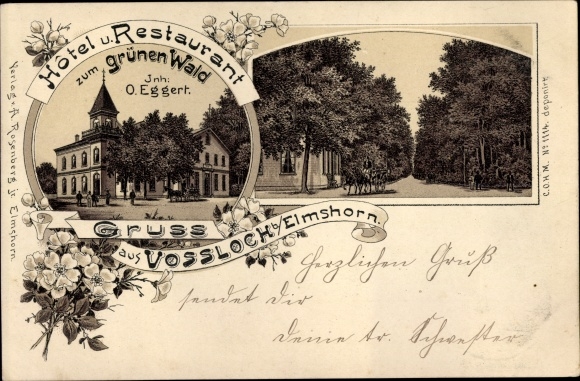 Hôtel u. Restaurant
zum grünen Wald
Inh:
O. Eggert.
Gruss
aus VOSSLOCH b/Elmshorn.
Herzlichen Gruß
sendet Dir
Deine tr. Schwester
Verlag v. A. Rosenberg jr. Elmshorn.
C.O.H.M. No 1114. deponirt.